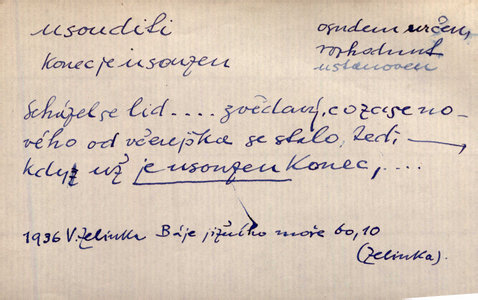 usouditi
osudem určen,
rozhodnut
konec je usouzen
ustanoven
Scházel se lid .... zvědavý, co zase no-
vého od včerejška se stalo, teď,
když už je usouzen konec, ....
1936 V. Zelinka Báje jižního moře 60, 10
(Zelinka).